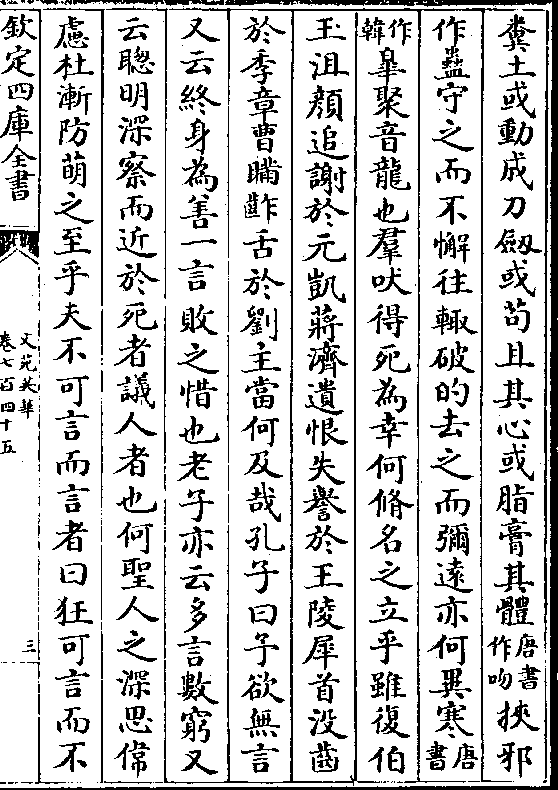 糞土或動成刀劔或苟且其心或脂膏其體唐書作吻挾邪
作蠱守之而不懈往輙破的去之而彌遠亦何異寒唐書
作韓臯聚音龍也羣吠得死為幸何脩名之立乎雖復伯
玉沮顔追謝於元凱蔣濟遺恨失譽於王陵犀首没齒
於季章曹瞞齚舌於劉主當何及哉孔子曰予欲無言
又云終身為善一言敗之惜也老子亦云多言數窮又
云聰明深察而近於死者議人者也何聖人之深思偉
慮杜漸防萌之至乎夫不可言而言者曰狂可言而不
欽定四庫全書
文苑英華
卷七百四十五
三